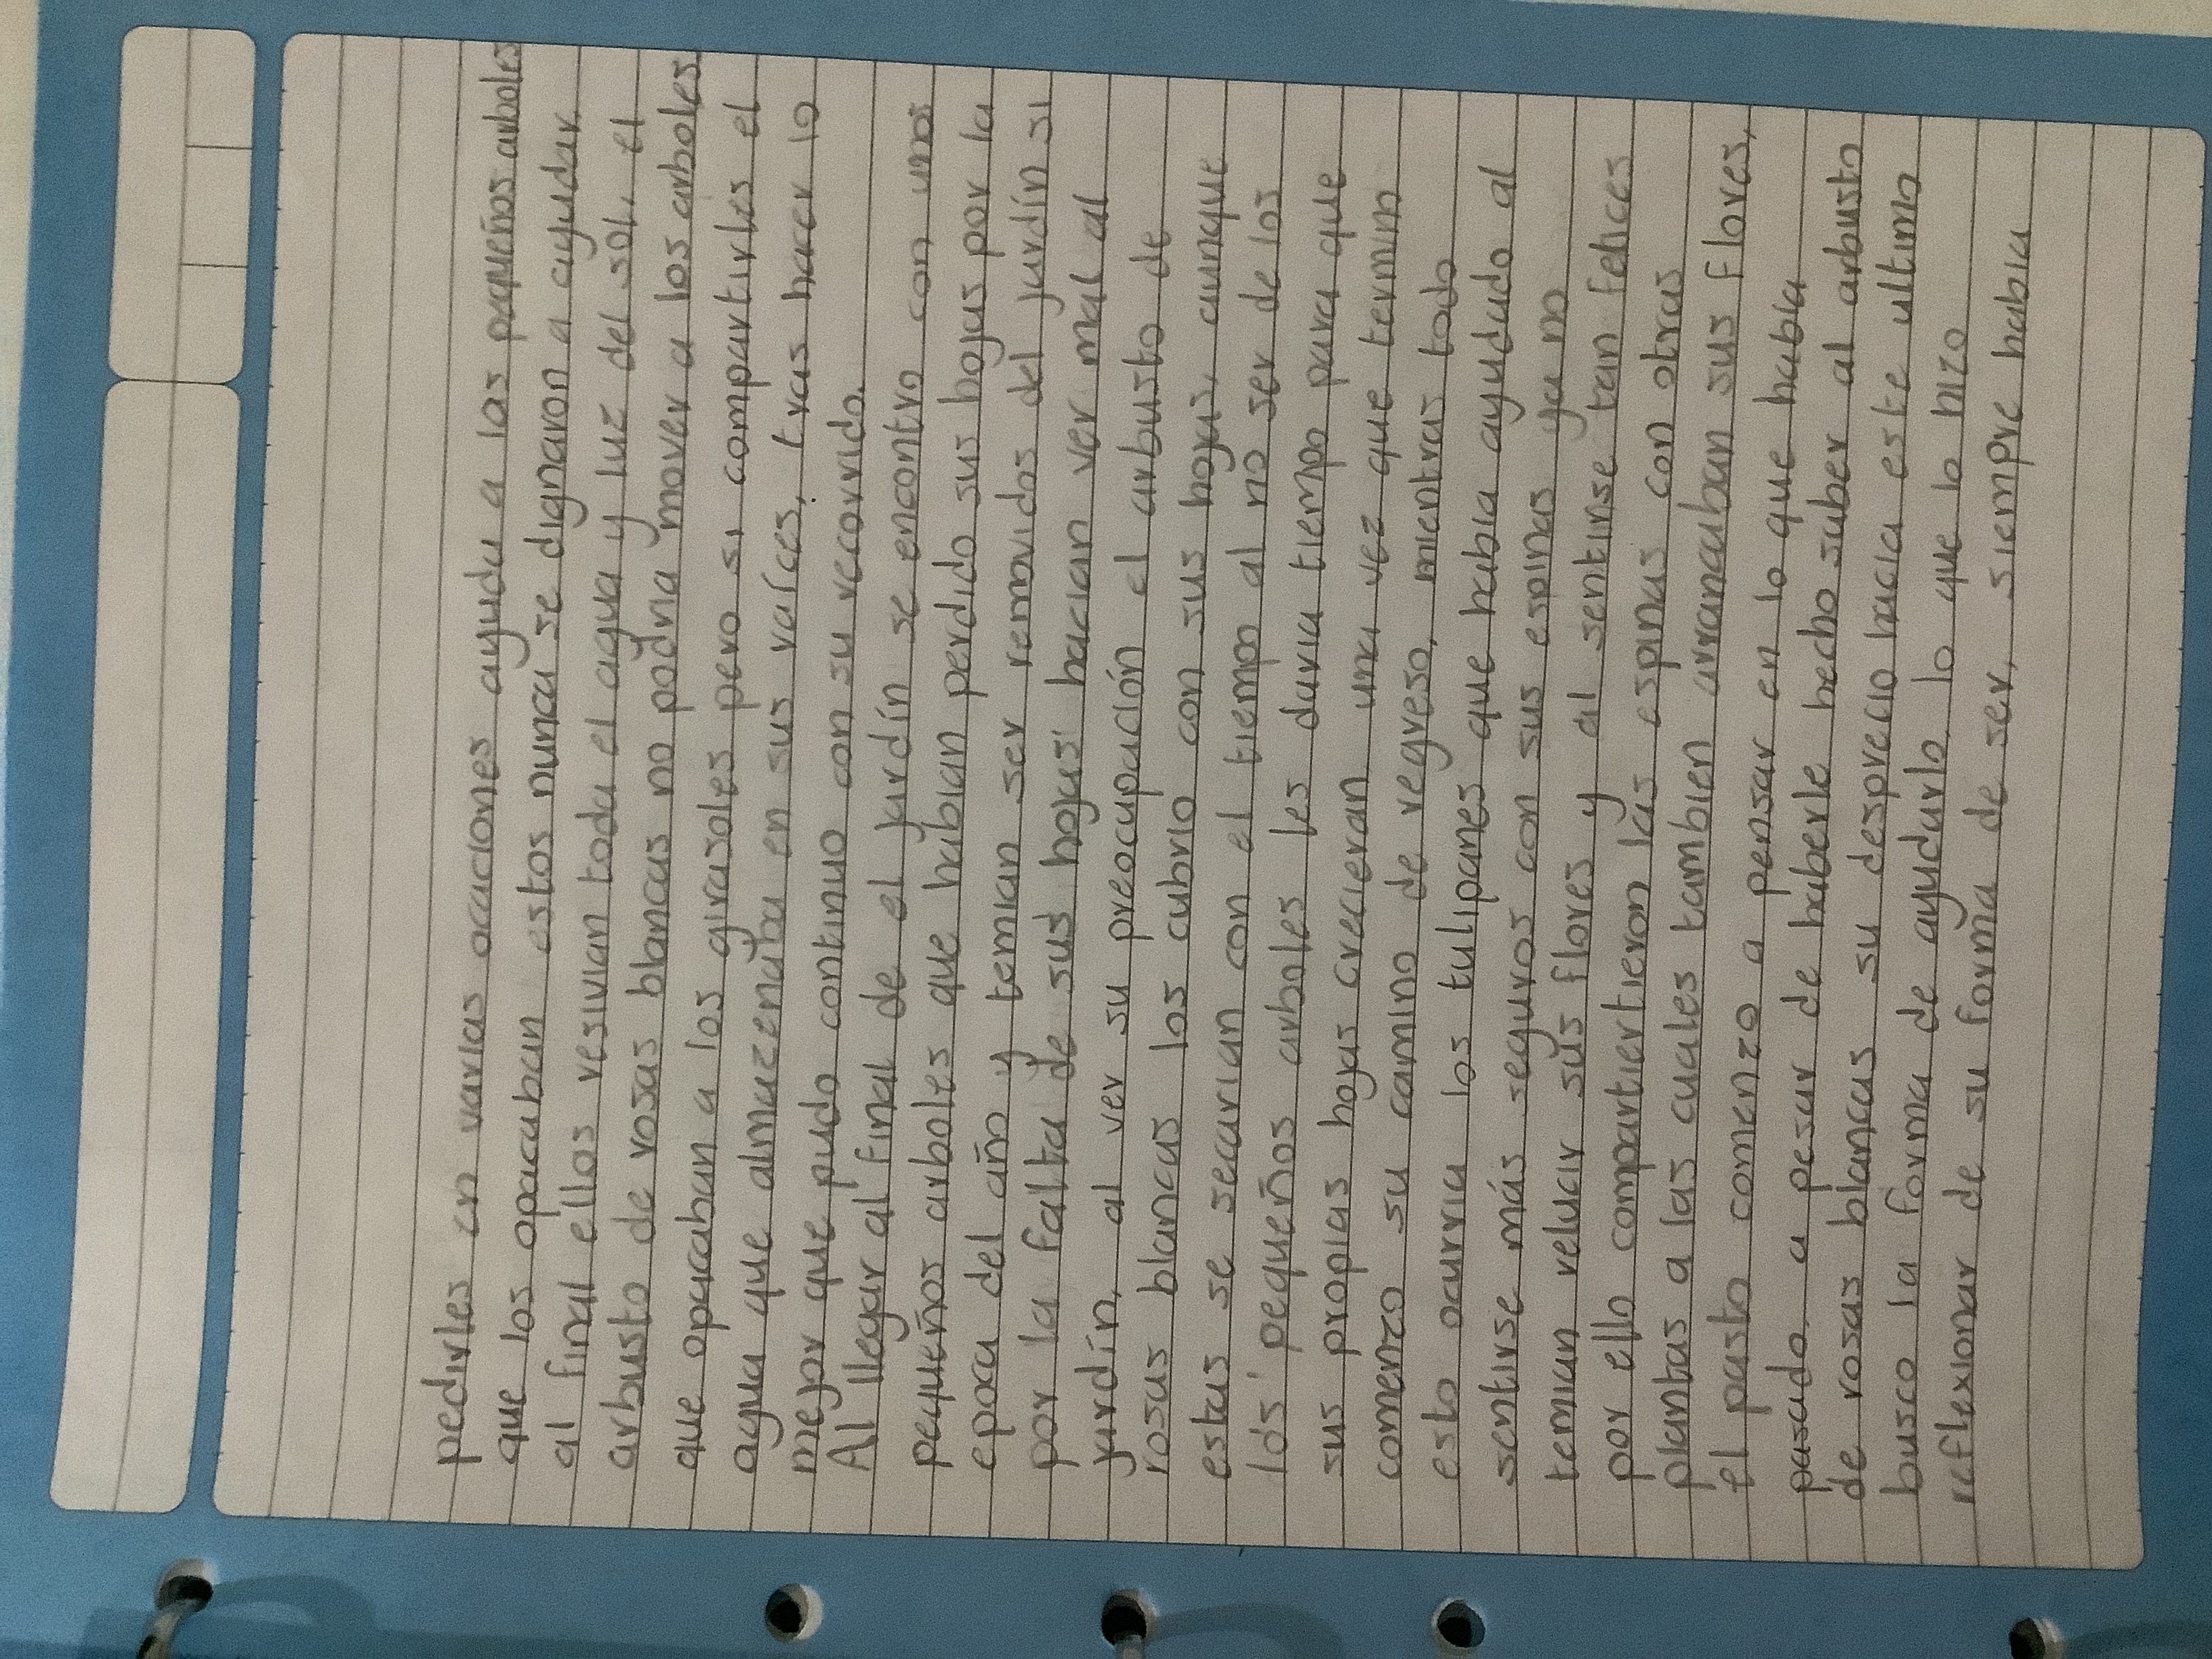 pedirles en varias ocaciones ayuda a los pequeños arboles
que los opacaban estos nunca se dignaron a ayudar
al final ellos resivian toda el agua y luz del sol, el
arbusto de rosas blancas no podria mover a los arboles
que opacaban a los girasoles pero si compartirles el
agua que almazenaba en sus raíces, tras hacer lo
mejor que pudo continuo con su recorrido.
Al llegar al final de el jardín se encontro con unos
pequeños arboles que habian perdido sus hojas por la
epoca del año y temian ser removidos del jardín si
por la falta de sus hojas hacian ver mal al
jardín, al ver su preocupación el arbusto de
rosas blancas los cubrio con sus hojas, aunque
estas se secarian con el tiempo al no ser de los
los pequeños arboles les daria tiempo para que
sus propias hojas crecieran una vez que termino
comenzo su camino de regreso, mientras todo
esto ocurria los tulipanes que habia ayudado al
sentirse más seguros con sus espinas ya no
temian relucir sus flores y al sentirse tan felices
por ello compartiertieron las espinas con otras
plantas a las cuales tambien arrancaban sus flores,
el pasto comenzo a pensar en lo que habia
pasado, a pesar de haberle hecho saber al arbusto
de rosas blancas su desprecio hacia este ultimo
busco la forma de ayudarlo, lo que lo hizo
reflexionar de su forma de ser, siempre habia